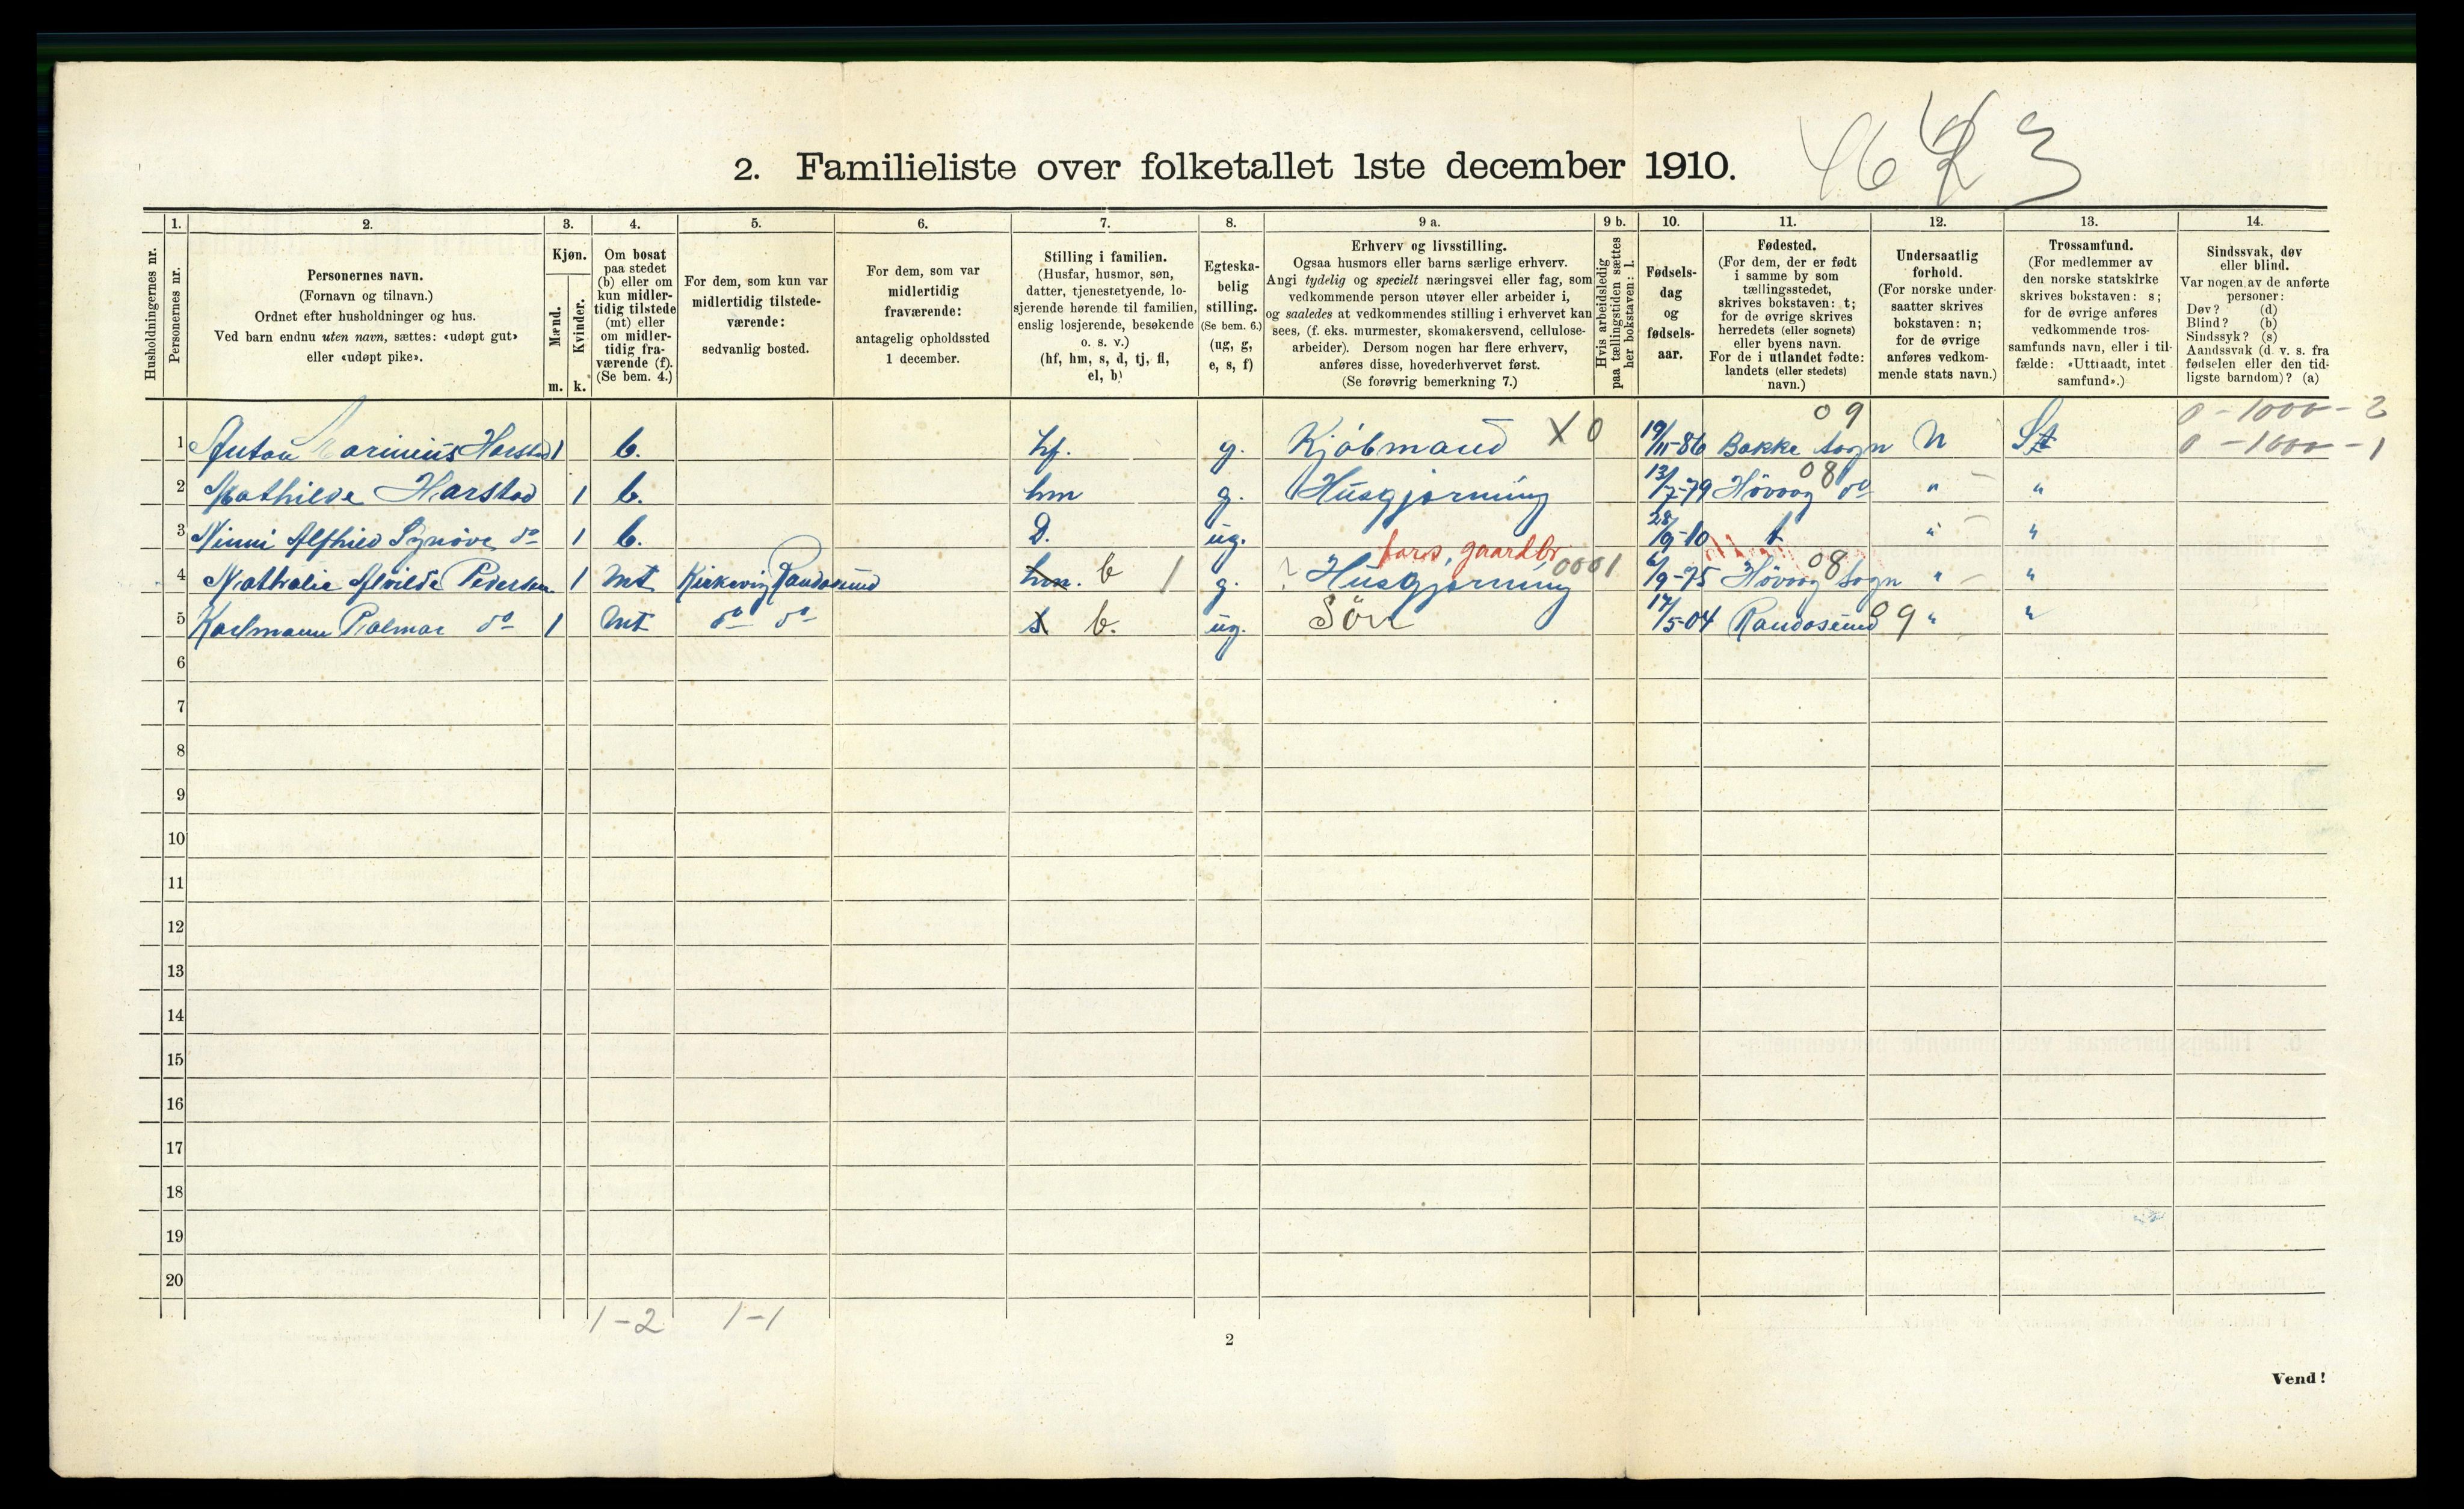 2. Familieliste over folketallet 1ste december 1910.
3
1. 2. 3. 4. 5. 6. 7. 8. 9 a. 9 b. 10. 11. 12. 13. 14.
Husholdningernes nr.
Personernes nr.
Personernes navn.
(Fornavn og tilnavn.)
Ordnet efter husholdninger og hus.
Ved barn endnu uten navn, sættes: «udøpt gut»
eller «udøpt pike».
Kjøn.
Mænd.
Kvinder.
m. k.
Om bosat
paa stedet
(b) eller om
kun midler-
tidig tilstede
(mt) eller
om midler-
tidig fra-
værende (f).
(Se bem. 4.)
For dem, som kun var
midlertidig tilstede-
værende:
sedvanlig bosted.
For dem, som var
midlertidig
fraværende:
antagelig opholdssted
1 december.
Stilling i familien.
(Husfar, husmor, søn,
datter, tjenestetyende, lo-
sjerende hørende til familien,
enslig losjerende, besøkende
o. s. v.)
(hf, hm, s, d, tj, fl,
el, b)
Egteska-
belig
stilling.
(Se bem. 6.)
(ug, g,
e, s, f)
Erhverv og livsstilling.
Ogsaa husmors eller barns særlige erhverv.
Angi tydelig og specielt næringsvei eller fag, som
vedkommende person utøver eller arbeider i,
og saaledes at vedkommendes stilling i erhvervet kan
sees, (f. eks. murmester, skomakersvend, cellulose-
arbeider). Dersom nogen har flere erhverv,
anføres disse, hovederhvervet først.
(Se forøvrig bemerkning 7.)
Hvis arbeidsledig
paa tællingstiden sættes
her bokstaven: l.
Fødsels-
dag
og
fødsels-
aar.
Fødested.
(For dem, der er født
i samme by som
tællingsstedet,
skrives bokstaven: t;
for de øvrige skrives
herredets (eller sognets)
eller byens navn.
For de i utlandet fødte:
landets (eller stedets)
navn.)
Undersaatlig
forhold.
(For norske under-
saatter skrives
bokstaven: n;
for de øvrige
anføres vedkom-
mende stats navn.)
Trossamfund.
(For medlemmer av
den norske statskirke
skrives bokstaven: s;
for de øvrige anføres
vedkommende tros-
samfunds navn, eller i til-
fælde: «Uttraadt, intet
samfund».)
Sindssvak, døv
eller blind.
Var nogen av de anførte
personer:
Døv? (d)
Blind? (b)
Sindssyk? (s)
Aandssvak (d. v. s. fra
fødselen eller den tid-
ligste barndom)? (a)
09 0-1000-2
1 Anton Marinius Harstad 1 b. hf. g. Kjøbmand X 0 19/11-86 Bakke sogn N St 0-1000-1
2 Mathilde Harstad 1 b. hm g. Husgjerning 13/7-79 Høvaag do 08 " "
3 Ninni Alfhild Synøve do 1 b. D. ug. 28/9-10 t " "
fars, gaardbr.
4 Nathalie Alvilde Pedersen 1 mt Kirkevig Randøsund hm. b 1 g. Husgjerning 0001 6/9-75 Høvaag sogn 08 " "
5 Karlmann Palmar do 1 mt do do s b. ug. Sön 17/5-04 Randøsund 09 " "
6
7
8
9
10
11
12
13
14
15
16
17
18
19
20
1-2 1-1
2
Vend!